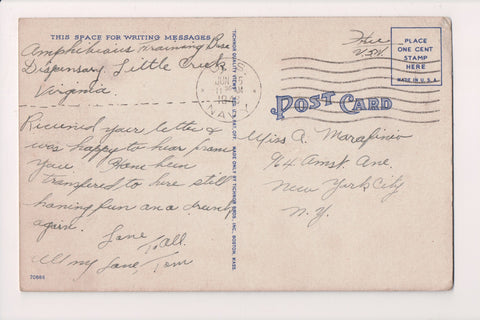 THIS SPACE FOR WRITING MESSAGES
Amphibious Training Base
Dispensary, Little Creek
Virginia
Received your letter &
was happy to hear from
you. Have been
transfered to here still
having fun and drunk
again.
Love
To All.
All my love, Tom
70885
TICHNOR QUALITY VIEWS
MADE ONLY BY TICHNOR BROS. INC., BOSTON, MASS.
Free
USN
PLACE
ONE CENT
STAMP
HERE
MADE IN U.S.A.
JUN
AM
VA.
POST CARD
Miss A. Marafinio
964 Amst. Ave.
New York City
N.Y.